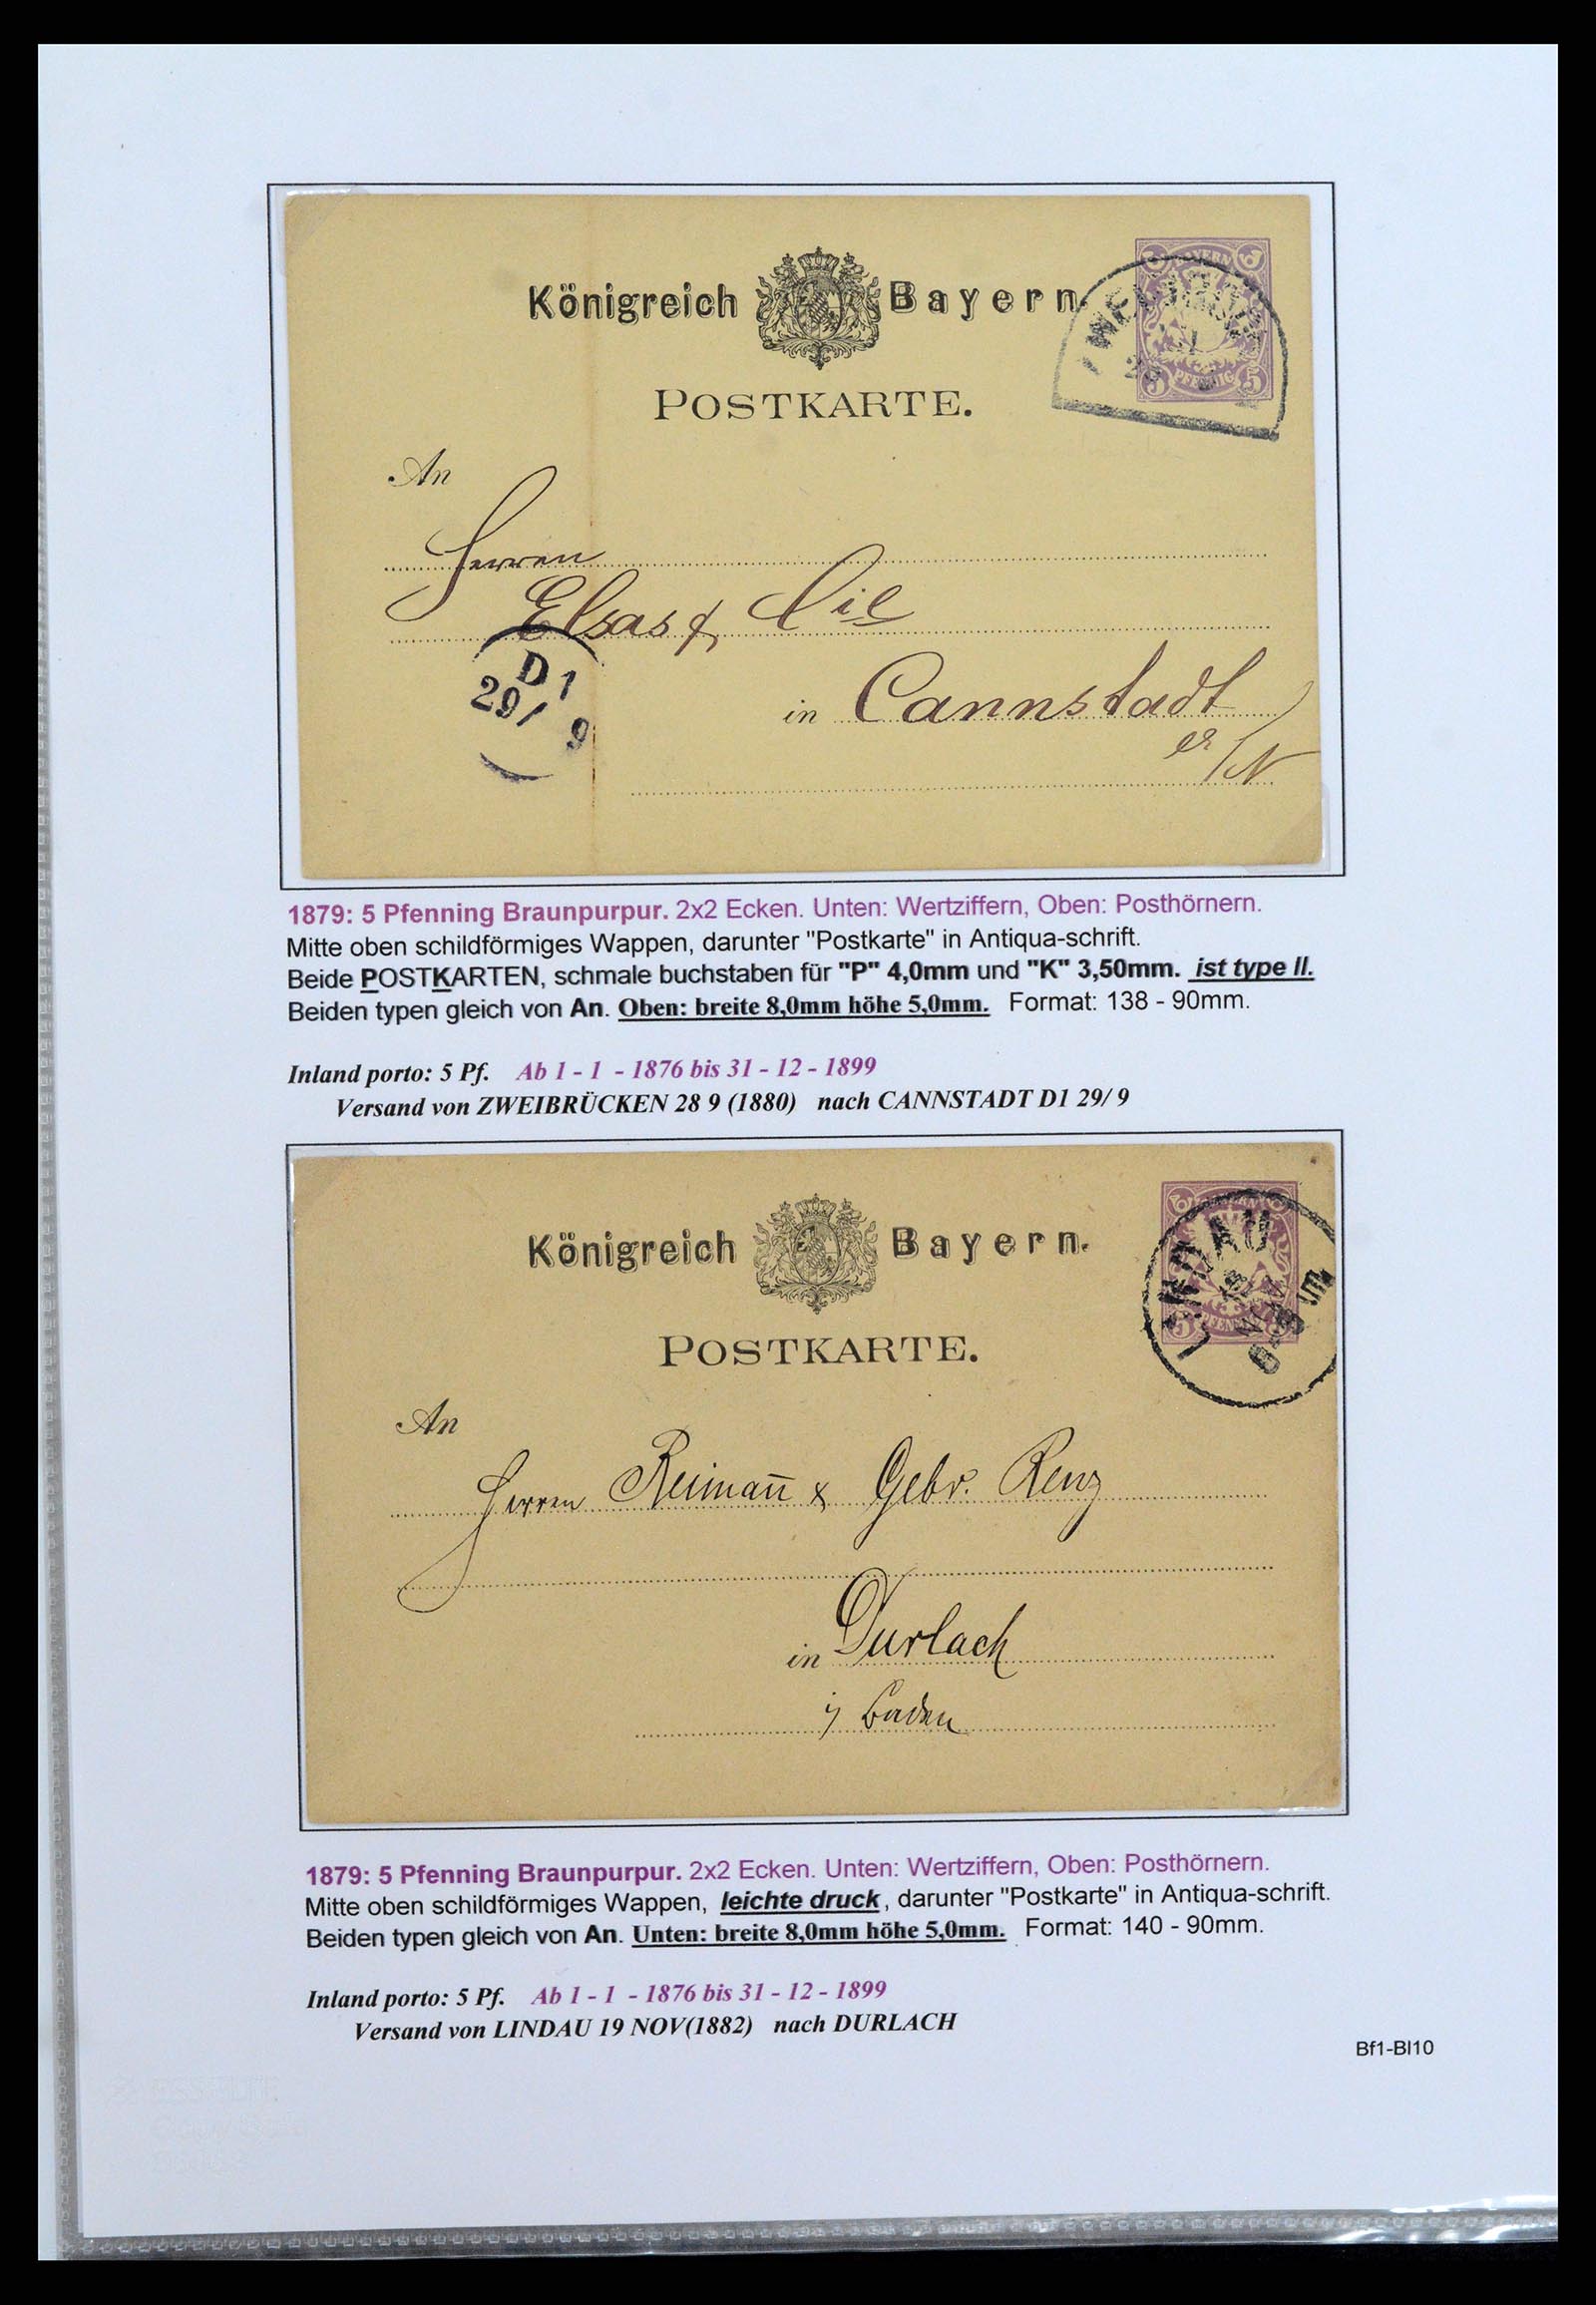 Königreich Bayern.
BAYERN
PFENNIG
5 5
POSTKARTE.
An
Herren
Elsas & Cie
D1
29/ 9
in Cannstadt
a/N
1879: 5 Pfenning Braunpurpur. 2x2 Ecken. Unten: Wertziffern, Oben: Posthörnern.
Mitte oben schildförmiges Wappen, darunter "Postkarte" in Antiqua-schrift.
Beide POSTKARTEN, schmale buchstaben für "P" 4,0mm und "K" 3,50mm. ist type II.
Beiden typen gleich von An. Oben: breite 8,0mm höhe 5,0mm. Format: 138 - 90mm.
Inland porto: 5 Pf. Ab 1 - 1 - 1876 bis 31 - 12 - 1899
Versand von ZWEIBRÜCKEN 28 9 (1880) nach CANNSTADT D1 29/ 9
Königreich Bayern.
LINDAU
19
NOV
POSTKARTE.
An
Herren Reiman̄ & Gebr. Renz
in Durlach
i/ Baden
1879: 5 Pfenning Braunpurpur. 2x2 Ecken. Unten: Wertziffern, Oben: Posthörnern.
Mitte oben schildförmiges Wappen, leichte druck, darunter "Postkarte" in Antiqua-schrift.
Beiden typen gleich von An. Unten: breite 8,0mm höhe 5,0mm. Format: 140 - 90mm.
Inland porto: 5 Pf. Ab 1 - 1 - 1876 bis 31 - 12 - 1899
Versand von LINDAU 19 NOV(1882) nach DURLACH
Bf1-Bl10